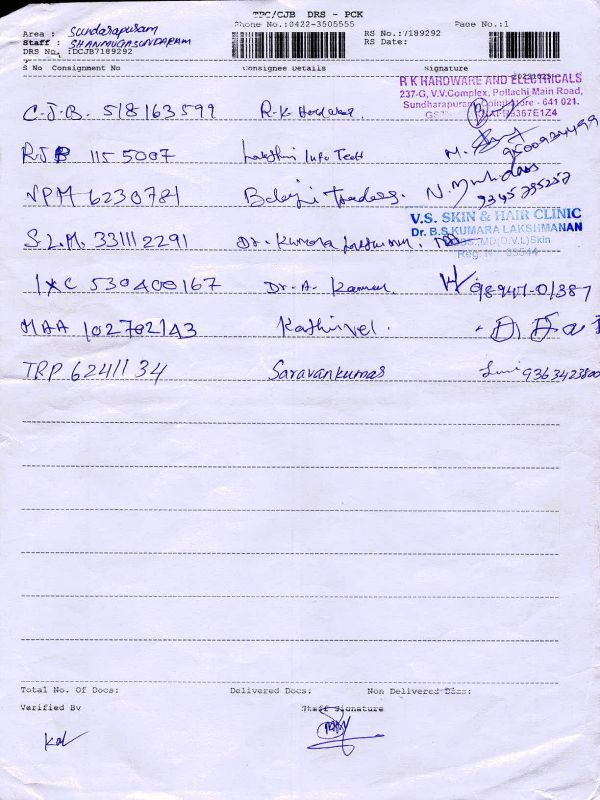 TPC/CJB DRS - PCK
Phone No.:0422-3505555
Page No.:1
Area : Sundarapuram
Staff : SHANMUGASUNDARAM
RS No.:7189292
DRS No. :DCJB7189292
RS Date:
S No Consignment No Consignee Details Signature
R K HARDWARE AND ELECTRICALS
237-G, V.V.Complex, Pollachi Main Road,
Sundharapuram, Coimbatore - 641 021.
C.J.B. 518163599 R.K
RJB 115 5007 Info Tech M.
9500924499
NPM 6230781 Balaji Traders. N.
9345735257
V.S. SKIN & HAIR CLINIC
Dr. B.S.KUMARA LAKSHMANAN
S.L.M. 33111 2291 Dr. Kumara
MBBS.,MD(D.V.L)Skin
IXC 530400167 Dr. A. Kannan
MAA 102702143 Kathirvel.
TRP 6241134 Saravankumar 9363423800
Total No. Of Docs: Delivered Docs: Non Delivered Docs:
Verified By Staff Signature